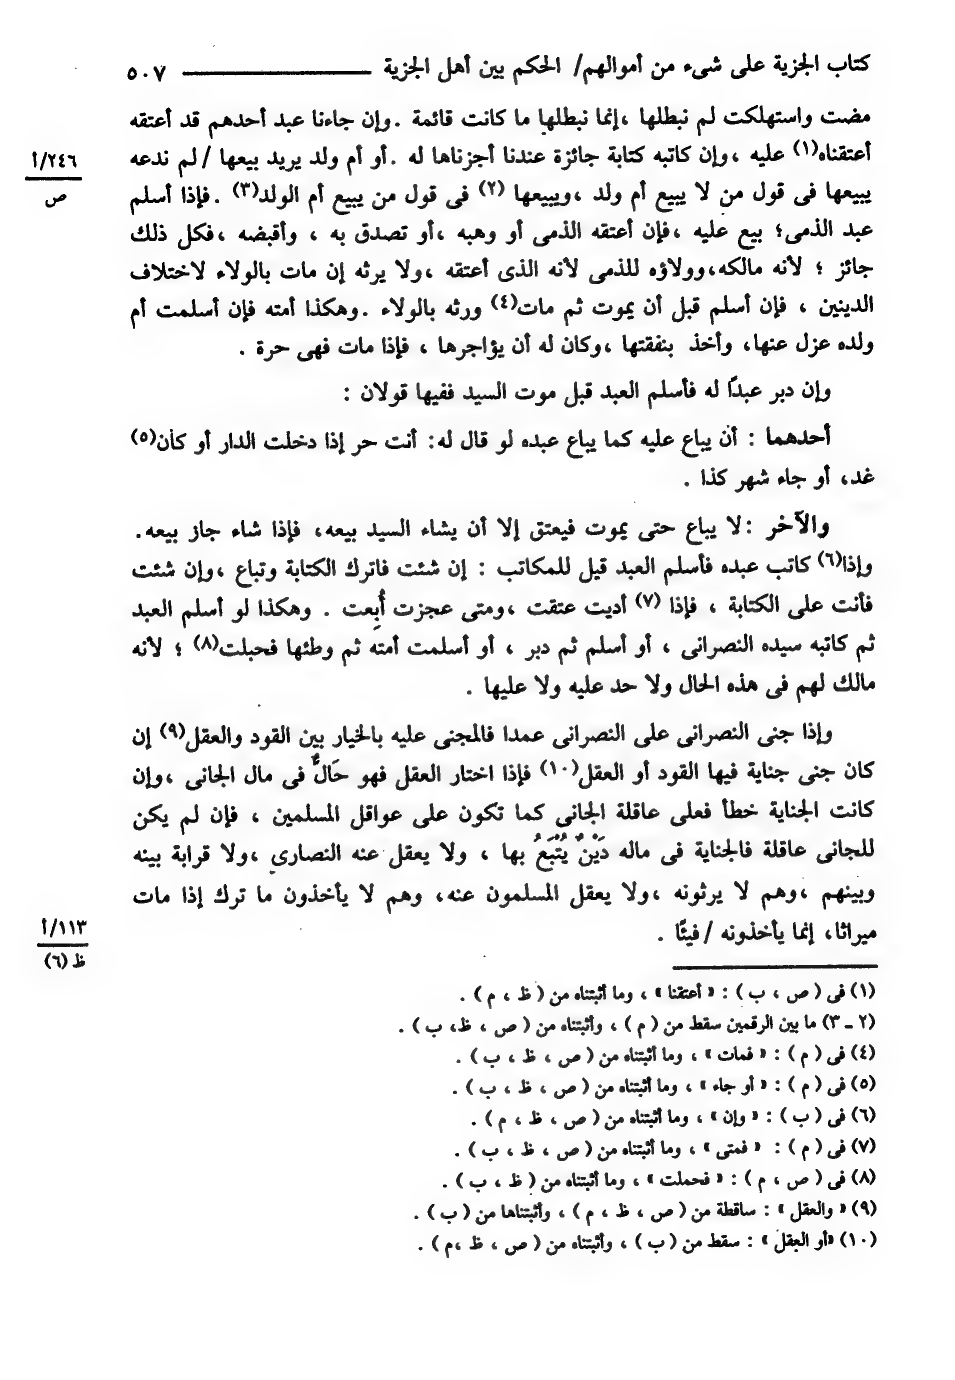 كتاب الجزية على شىء من أموالهم/ الحكم بين أهل الجزية ٥٠٧
مضت واستهلكت لم نبطلها ،إنما نبطلها ما كانت قائمة .وإن جاءنا عبد أحدهم قد أعتقه
أعتقناه(١) عليه ،وإن كاتبه كتابة جائزة عندنا أجزناها له .أو أم ولد يريد بيعها /لم ندعه
٢٤٦/أ
ص
يبيعها فى قول من لا يبيع أم ولد ،ويبيعها (٢) فى قول من يبيع أم الولد(٣) .فإذا أسلم
عبد الذمى؛ بيع عليه ،فإن أعتقه الذمى أو وهبه ،أو تصدق به ، وأقبضه ،فكل ذلك
جائز ؛ لأنه مالكه،وولاؤه للذمى لأنه الذى أعتقه ،ولا يرثه إن مات بالولاء لاختلاف
الدينين ، فإن أسلم قبل أن يموت ثم مات(٤) ورثه بالولاء .وهكذا أمته فإن أسلمت أم
ولده عزل عنها، وأخذ بنفقتها ،وكان له أن يؤاجرها ، فإذا مات فهى حرة .
وإن دبر عبدًا له فأسلم العبد قبل موت السيد ففيها قولان :
أحدهما : أن يباع عليه كما يباع عبده لو قال له: أنت حر إذا دخلت الدار أو كان(٥)
غد، أو جاء شهر كذا .
والآخر :لا يباع حتى يموت فيعتق إلا أن يشاء السيد بيعه، فإذا شاء جاز بيعه.
وإذا(٦) كاتب عبده فأسلم العبد قيل للمكاتب : إن شئت فاترك الكتابة وتباع ،وإن شئت
فأنت على الكتابة ، فإذا (٧) أديت عتقت ،ومتى عجزت أُبِعت . وهكذا لو أسلم العبد
ثم كاتبه سيده النصرانى ، أو أسلم ثم دبر ، أو أسلمت أمته ثم وطئها فحبلت(٨) ؛ لأنه
مالك لهم فى هذه الحال ولا حد عليه ولا عليها .
وإذا جنى النصرانى على النصرانى عمدا فالمجنى عليه بالخيار بين القود والعقل(٩) إن
كان جنى جناية فيها القود أو العقل(١٠) فإذا اختار العقل فهو حَالٌّ فى مال الجانى ،وإن
كانت الجناية خطأ فعلى عاقلة الجانى كما تكون على عواقل المسلمين ، فإن لم يكن
للجانى عاقلة فالجناية فى ماله دَيْنٌ يُتْبَعُ بها ، ولا يعقل عنه النصارى ،ولا قرابة بينه
وبينهم ،وهم لا يرثونه ،ولا يعقل المسلمون عنه، وهم لا يأخذون ما ترك إذا مات
ميراثا، إنما يأخذونه /فيئًا .
١١٣/أ
ظ (٦)
(١) فى ( ص ، ب ) : « أعتقنا » ، وما أثبتناه من ( ظ ، م ) .
(٢ ــ ٣) ما بين الرقمين سقط من ( م ) ، وأثبتناه من ( ص ، ظ، ب ) .
(٤) فى ( م ) : « فمات » ، وما أثبتناه من ( ص ، ظ ، ب ) .
(٥) فى ( م ) : « أو جاء » ، وما أثبتناه من ( ص ، ظ ، ب ) .
(٦) فى ( ب ) : « وإن » ، وما أثبتناه من ( ص ، ظ ، م ) .
(٧) فى ( م ) : « فمتى » ، وما أثبتناه من ( ص ، ظ ، ب ) .
(٨) فى ( ص ، م ) : « فحملت » ، وما أثبتناه من ( ظ ، ب ) .
(٩) « والعقل » : ساقطة من ( ص ، ظ ، م ) ، وأثبتناها من ( ب ) .
(١٠) «أو العقل » : سقط من ( ب ) ، وأثبتناه من ( ص ، ظ ،م ) .